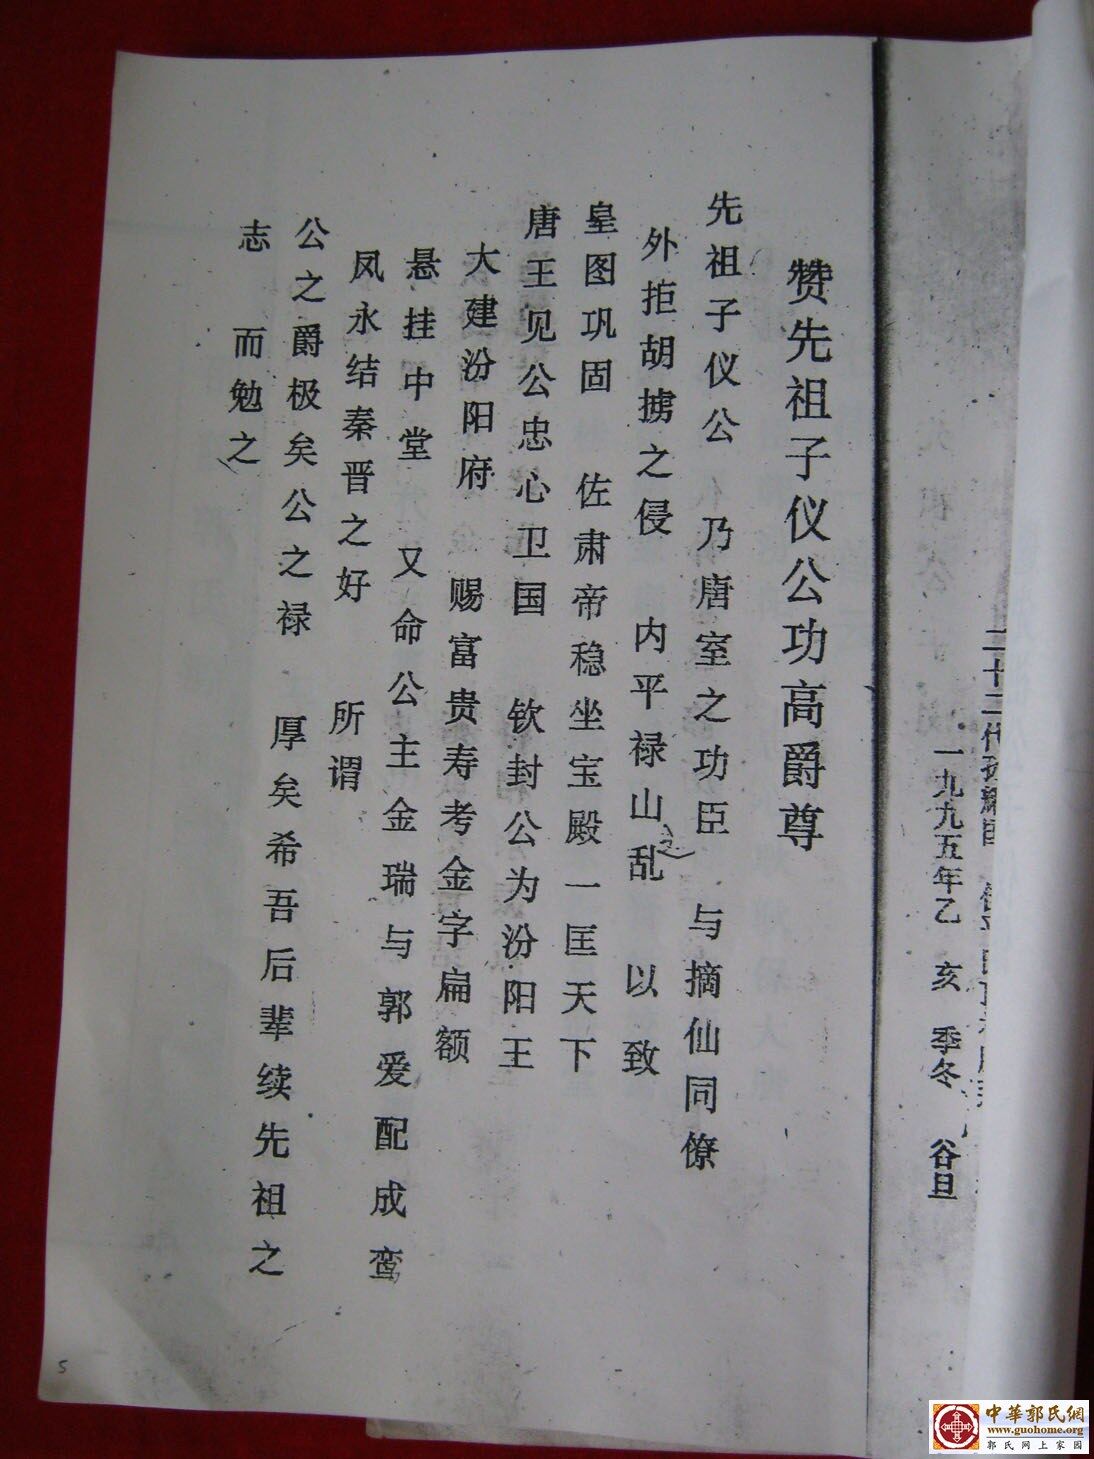 二十二代孙
一九九五年乙 亥 季冬 谷旦
赞先祖子仪公功高爵尊
先祖子仪公 乃唐室之功臣 与摘仙同僚
外拒胡掳之侵 内平禄山之乱 以致
皇图巩固 佐肃帝稳坐宝殿一匡天下
唐王见公忠心卫国 钦封公为汾阳王
大建汾阳府 赐富贵寿考金字扁额
悬挂中堂 又命公主金瑞与郭爱配成鸾
凤永结秦晋之好 所谓
公之爵极矣公之禄 厚矣希吾后辈续先祖之
志 而勉之
5
中華郭氏網
www.guohome.org
郭氏网上家园